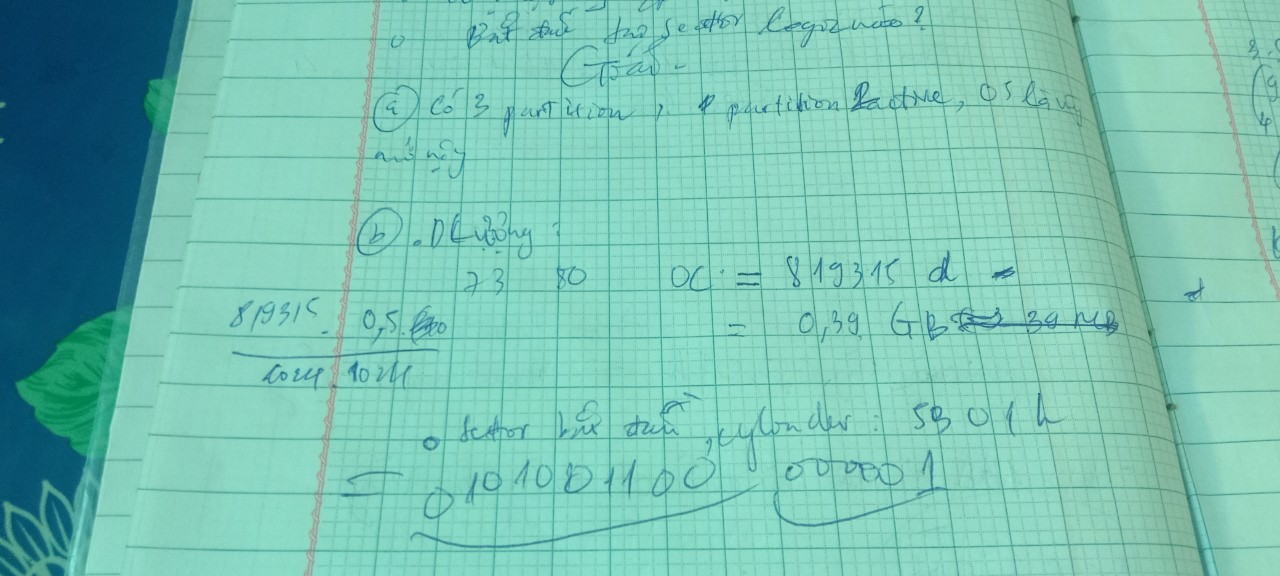 o Bắt đầu từ sector logic nào?
Giải
(a) Có 3 partition, partition 2 active, OS
(b) . D Lượng :
73 80 0C = 819315 d
819315 . 0,5
1024 . 1024
= 0,39 GB
o Sector bắt đầu, cylonder : 5301h
= 0101001100 000001